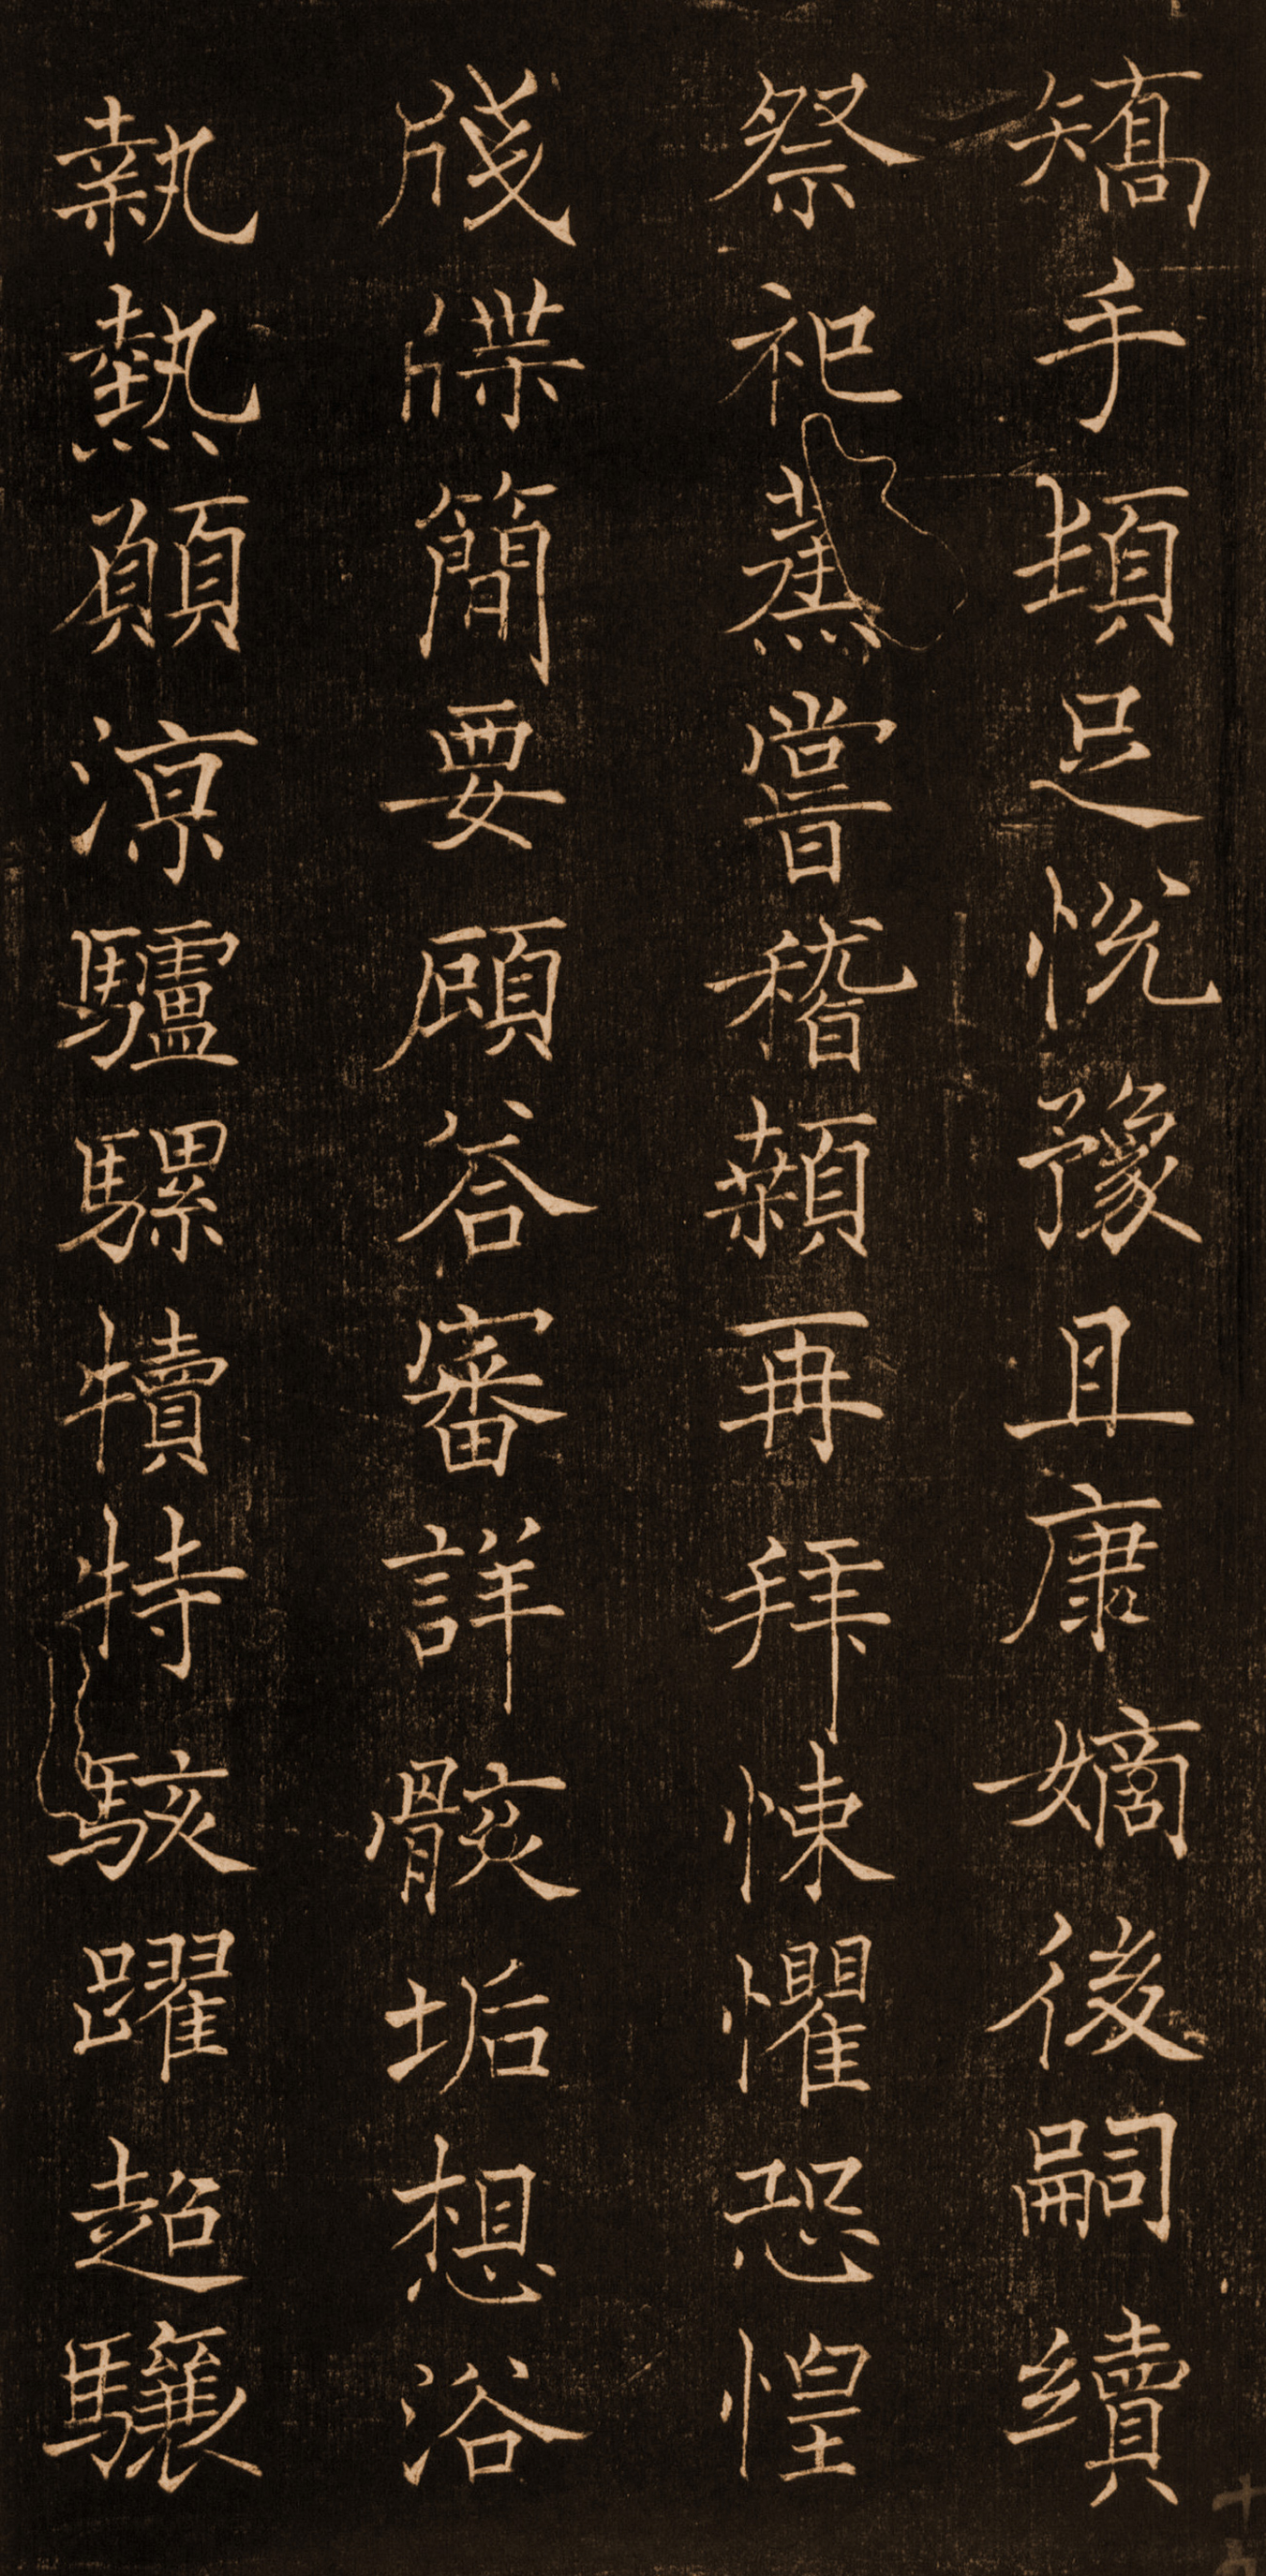 矯手頓足悦豫且康嫡後嗣續
祭祀蒸嘗稽顙再拜悚懼恐惶
牋牒簡要顧答審詳骸垢想浴
執熱願涼驢騾犢特駭躍超驤